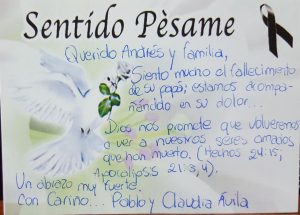 Sentido Pèsame
Querido Andrés y familia,
Siento mucho el fallecimiento
de su papá; estamos acompa-
ñándolo en su dolor...
Dios nos promete que volveremos
a ver a nuestros seres amados
que han muerto. (Hechos 24:15;
Apocalipsis 21:3,4).
Un abrazo muy fuerte.
con Cariño... Pablo y Claudia Ávila